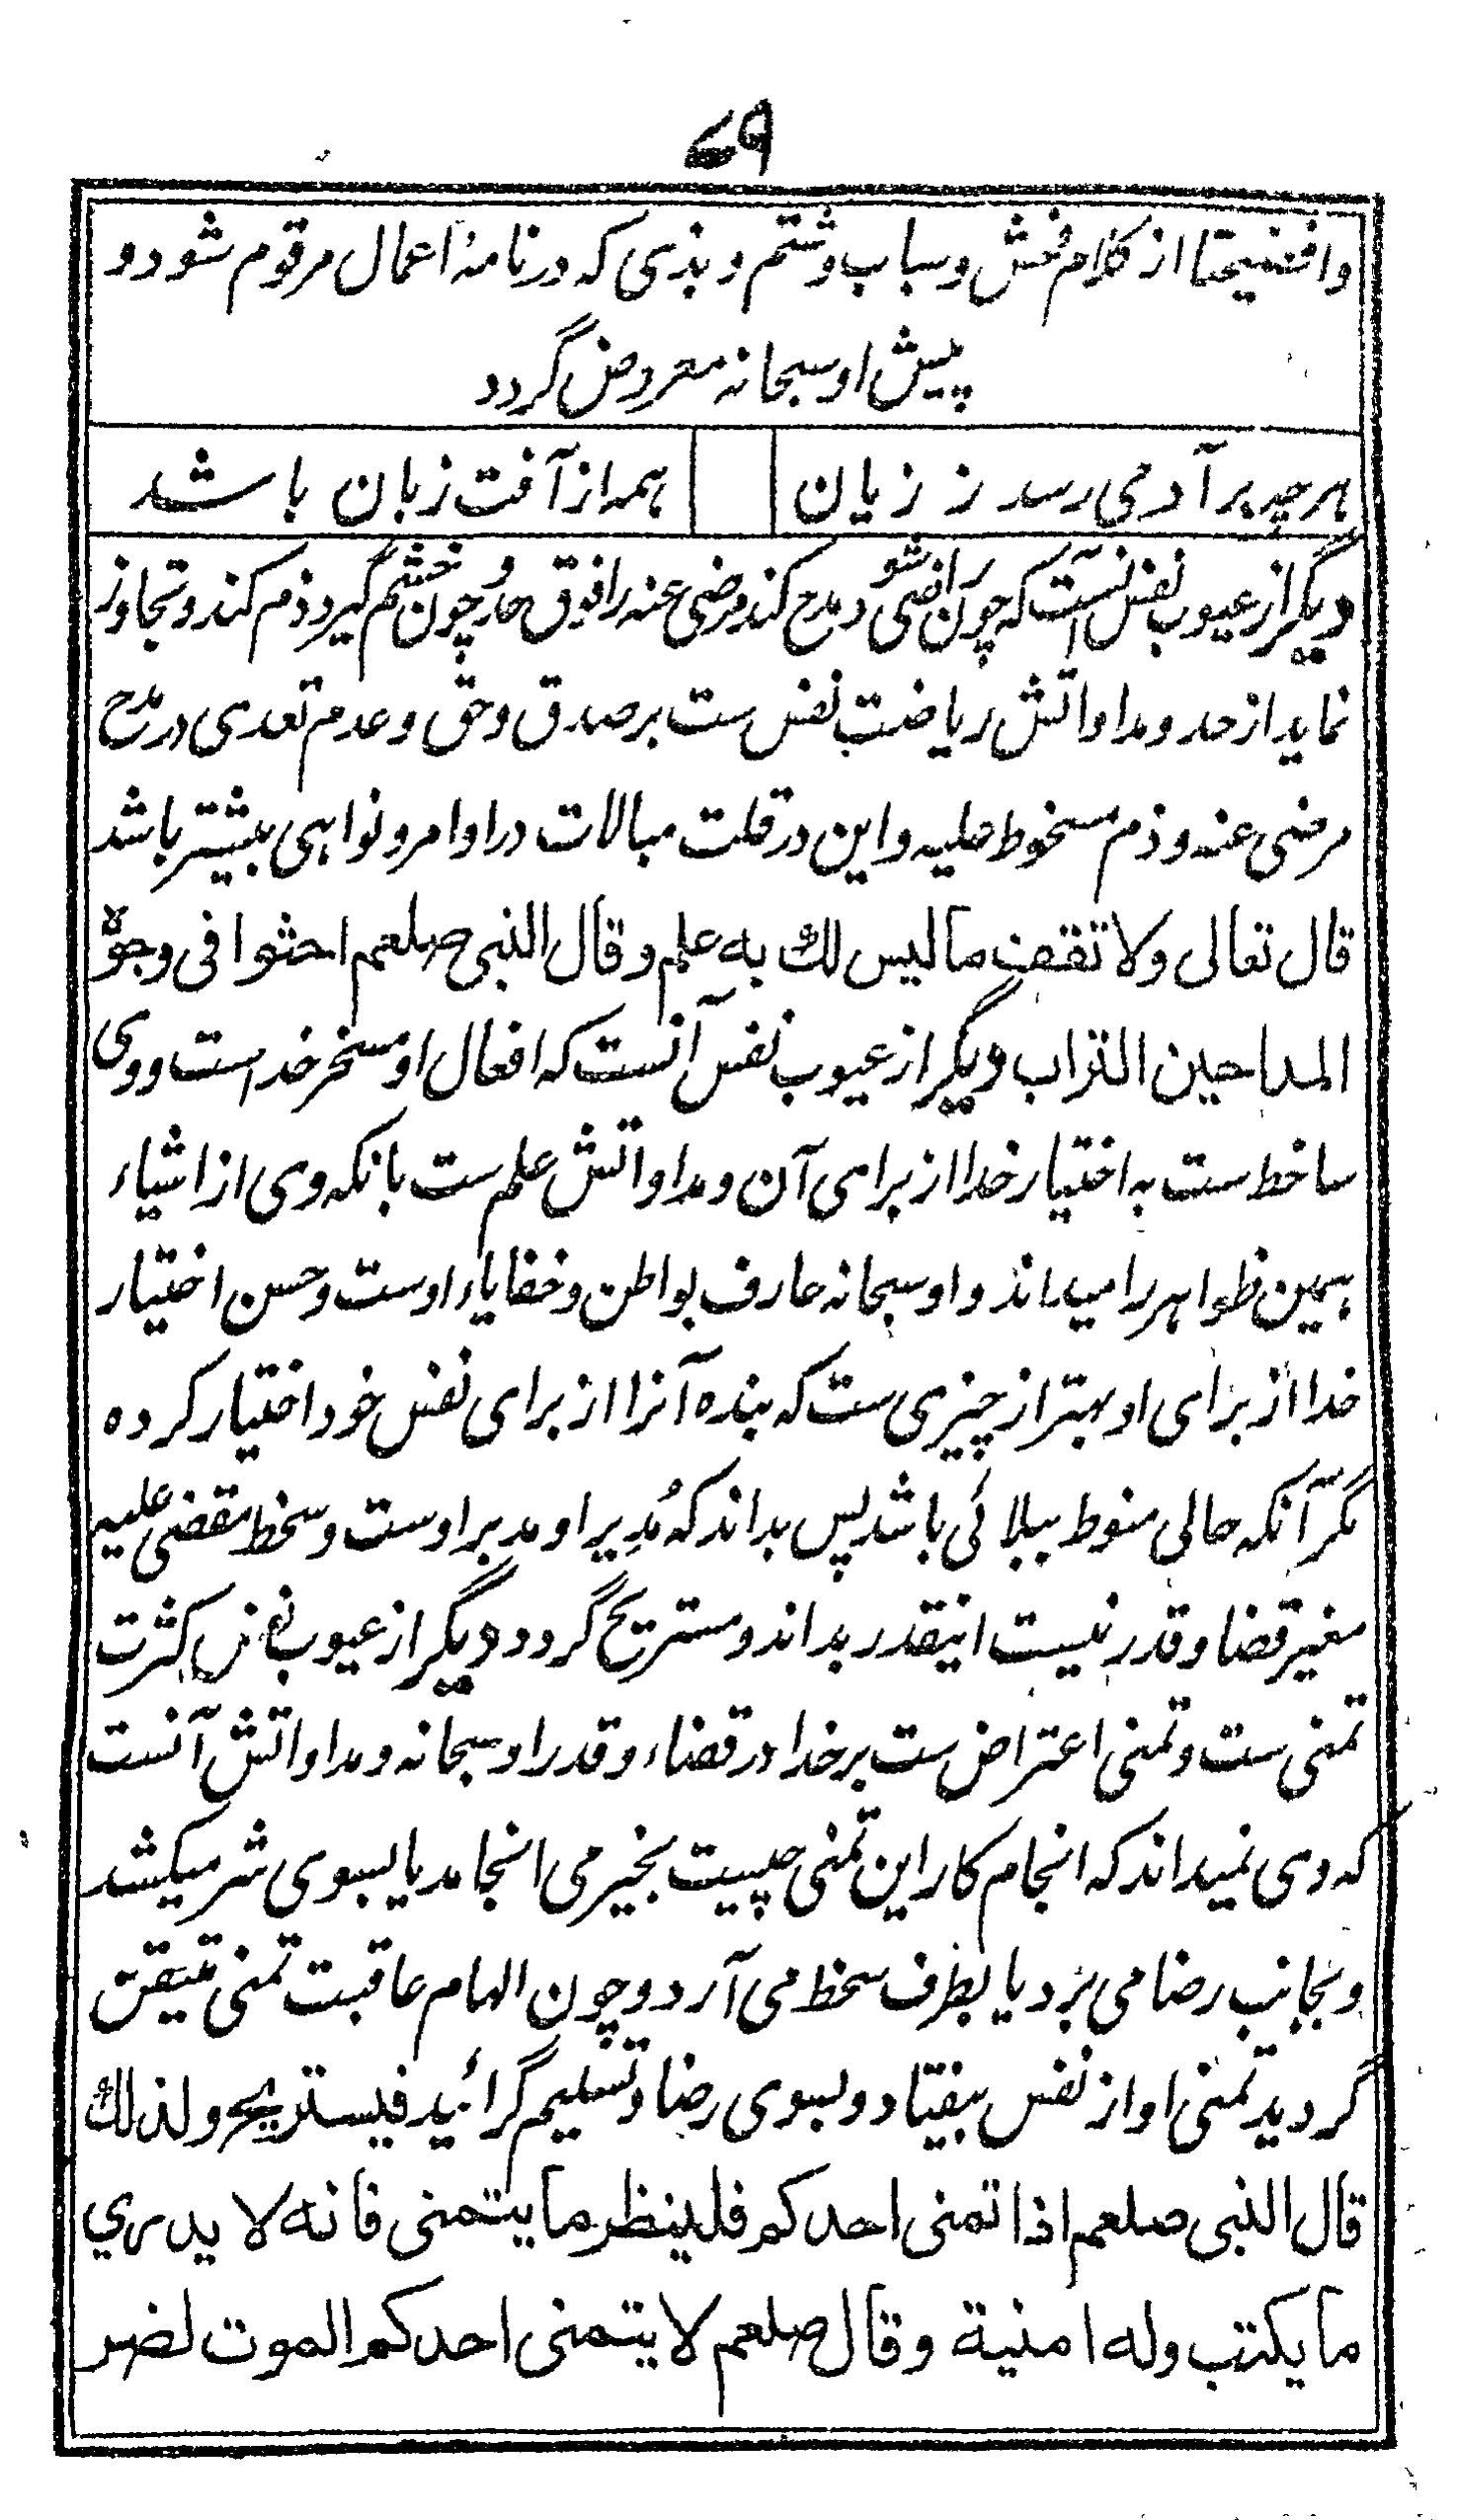 ۶۹
وافضیحتا از کلام فحش و سباب و شتم و بذی که در نامهٔ اعمال مرقوم شود و
پیش او سبحانه معروض گردد
هرچه بر آدمی رسد ز زیان همه از آفت زبان باشد
دیگر از عیوب نفس آنست که چون راضی شود مدح کند مرضی عنه را فوق حد و چون خشم گیرد ذم کند و تجاوز
نماید از حد و مداواتش ریاضت نفس ست بر صدق و حق و عدم تعدی در مدح
مرضی عنه و ذم مسخوط علیه و این در قلت مبالات در اوامر و نواهی بیشتر باشد
قال تعالی ولا تقف ما لیس لك به علم و قال النبی صلعم احثوا فی وجوه
المداحین التراب دیگر از عیوب نفس آنست که افعال او مسخر خداست و وی
ساخط ست به اختیار خدا از برای آن و مداواتش علم ست بانکه وی از اشیاء
همین ظواهر را میداند و او سبحانه عارف بواطن و خفایاء اوست و حسن اختیار
خدا از برای او بهتر از چیزی ست که بنده آنرا از برای نفس خود اختیار کرده
مگر آنکه حالی منوط ببلائی باشد پس بداند که مُدیر او مدبر اوست و سخط مقضی علیه
مغیر قضا و قدر نیست اینقدر بداند و مستریح گردد دیگر از عیوب نفس کثرت
تمنی ست و تمنی اعتراض ست بر خدا در قضاء و قدر او سبحانه و مداواتش آنست
که وی نمیداند که انجام کار این تمنی چیست بخیر می انجامد یا بسوی شر میکشد
و بجانب رضا می برد یا بطرف سخط می آرد و چون الهام عاقبت تمنی متیقن
گردید تمنی او از نفس بیفتاد و بسوی رضا و تسلیم گرائید فیستریح ولذلك
قال النبی صلعم اذا تمنی احدکم فلینظر ما یتمنی فانه لا یدري
ما یکتب وله امنیة وقال صلعم لا یتمنی احدکم الموت لضر